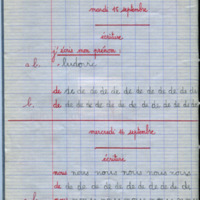 mardi 15 septembre
écriture
j'écris mon prénom :
a b. - ludovic
de de de de de de de de de de de de
b. de de de de de de de de de de de
mercredi 16 septembre
écriture
nous nous nous nous nous nous
de de de de de de de de de de